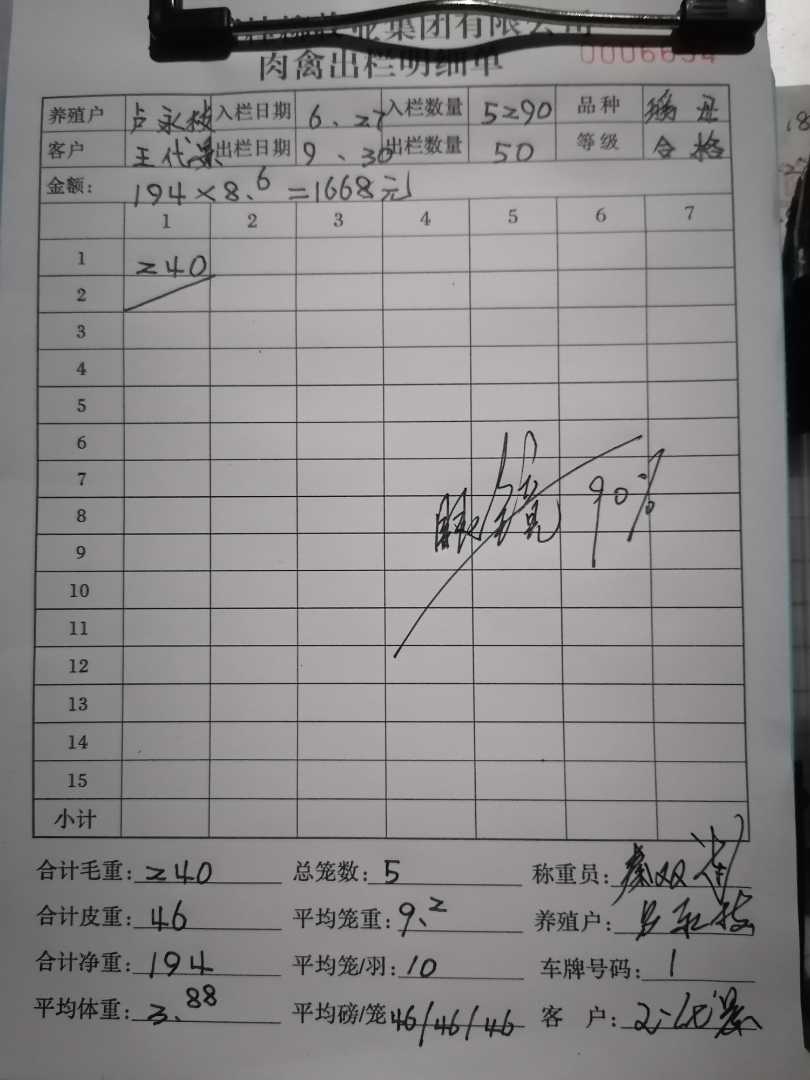 集团有限公司
肉禽出栏明细单 0006654
养殖户 卢永枝 入栏日期 6、27 入栏数量 5290 品种
客户 王代 出栏日期 9、30 出栏数量 50 等级 合格
金额: 194×8.6=1668元
1 2 3 4 5 6 7
1 240
2
3
4
5
6
7
8 眼镜 90%
9
10
11
12
13
14
15
小计
合计毛重: 240 总笼数: 5 称重员: 秦双
合计皮重: 46 平均笼重: 9.2 养殖户: 卢永枝
合计净重: 194 平均笼/羽: 10 车牌号码: 1
平均体重: 3.88 平均磅/笼 46/46/46 客 户: